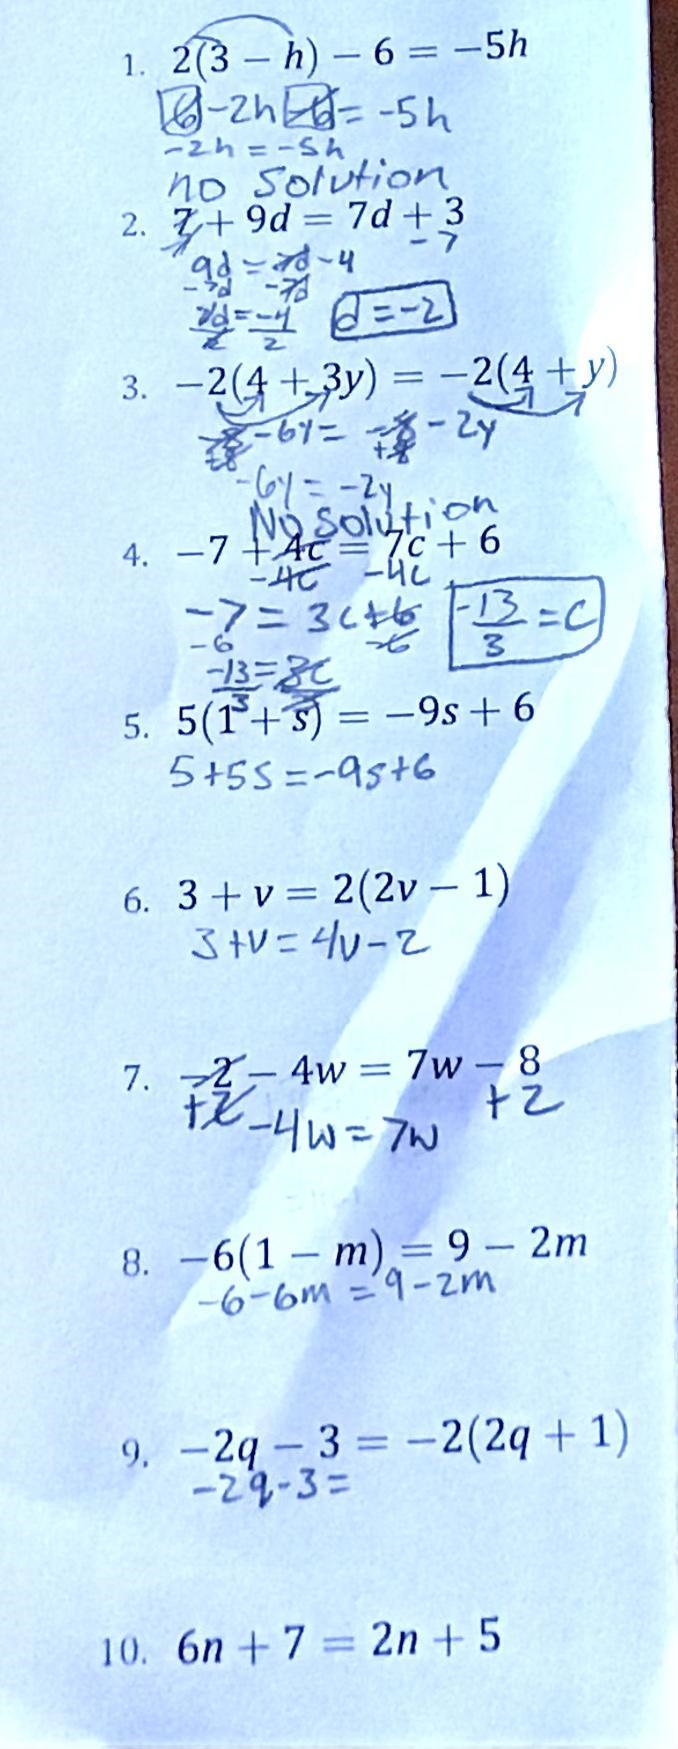 1. 2(3 – h) – 6 = –5h
6 -2h -6 = -5h
-2h = -5h
no solution
2. 7 + 9d = 7d + 3
-7 -7
9d = 7d -4
-7d -7d
2d = -4
2 2
d = -2
3. –2(4 + 3y) = –2(4 + y)
-8 -6y = -8 - 2y
+8 +8
-6y = -2y
No solution
4. –7 + 4c = 7c + 6
-4c -4c
-7 = 3c +6
-6 -6
-13 = 3c
3 3
-13/3 = c
5. 5(1 + s) = –9s + 6
5+5s = -9s+6
6. 3 + v = 2(2v – 1)
3+v = 4v-2
7. –2 – 4w = 7w – 8
+2 +2
-4w = 7w
8. –6(1 – m) = 9 – 2m
-6-6m = 9-2m
9. –2q – 3 = –2(2q + 1)
-2q-3 =
10. 6n + 7 = 2n + 5